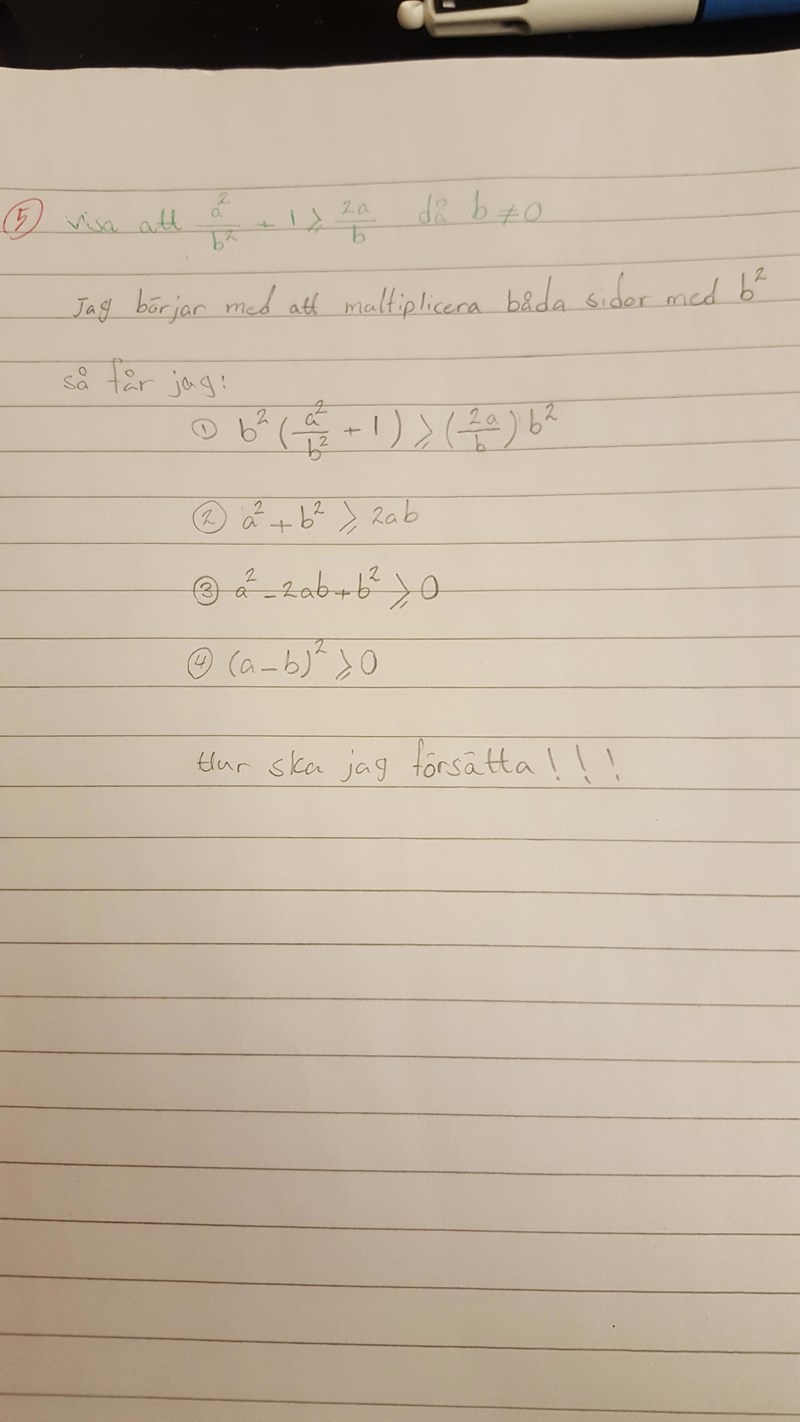 ⑤ visa att a²/b² + 1 ≥ 2a/b då b ≠ 0
Jag börjar med att multiplicera båda sidor med b²
så får jag:
① b² (a²/b² + 1) ≥ (2a/b) b²
② a² + b² ≥ 2ab
③ a² - 2ab + b² ≥ 0
④ (a - b)² ≥ 0
Hur ska jag försätta!!!